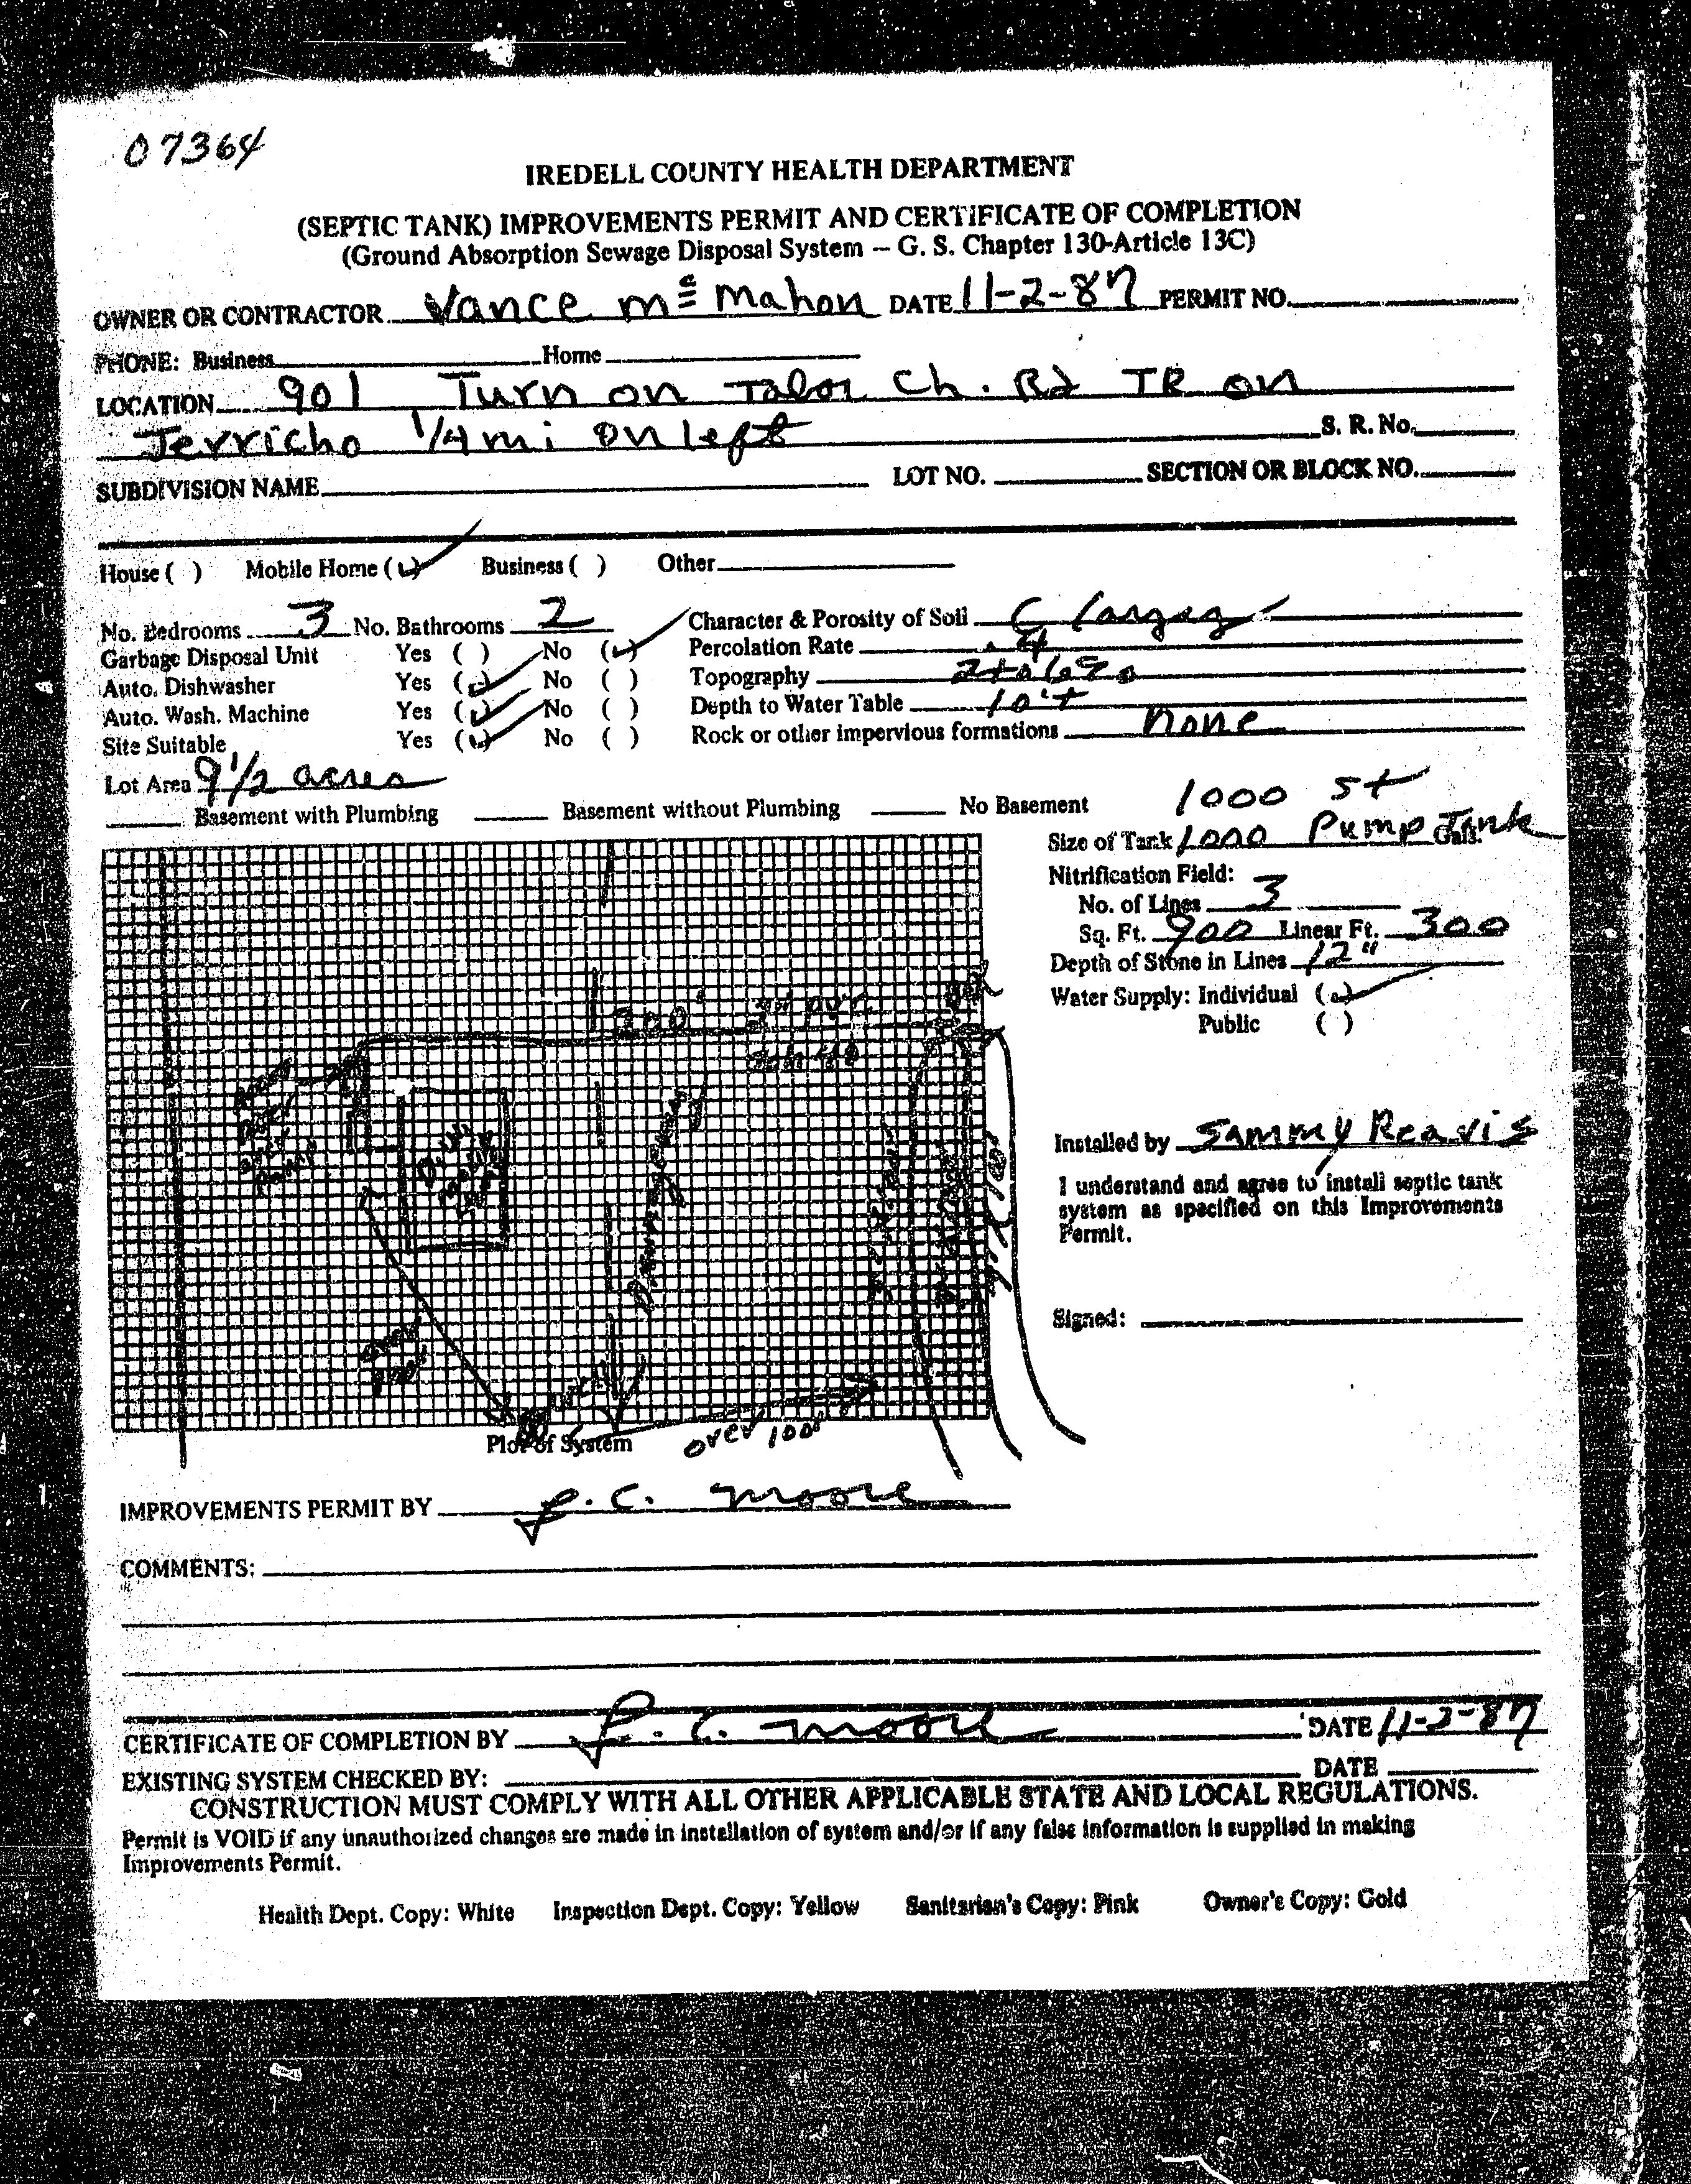 07364
IREDELL COUNTY HEALTH DEPARTMENT
(SEPTIC TANK) IMPROVEMENTS PERMIT AND CERTIFICATE OF COMPLETION
(Ground Absorption Sewage Disposal System – G. S. Chapter 130-Article 13C)
OWNER OR CONTRACTOR Vance Mc Mahon DATE 11-2-87 PERMIT NO.
PHONE: Business Home
LOCATION 901 Turn on Tabor Ch. Rd TR on
Jerricho 1/4 mi on left S. R. No.
SUBDIVISION NAME LOT NO. SECTION OR BLOCK NO.
House ( ) Mobile Home (✓) Business ( ) Other
No. Bedrooms 3 No. Bathrooms 2 Character & Porosity of Soil
Garbage Disposal Unit Yes ( ) No (✓) Percolation Rate .4
Auto. Dishwasher Yes (✓) No ( ) Topography 2 to 6%
Auto. Wash. Machine Yes (✓) No ( ) Depth to Water Table 10'+
Site Suitable Yes (✓) No ( ) Rock or other impervious formations none
Lot Area 9 1/2 acres
Basement with Plumbing Basement without Plumbing No Basement
1000 St
Size of Tank 1000 Pump Tank Gals.
Nitrification Field:
No. of Lines 3
Sq. Ft. 900 Linear Ft. 300
Depth of Stone in Lines 12"
Water Supply: Individual (✓)
Public ( )
Installed by Sammy Reavis
I understand and agree to install septic tank
system as specified on this Improvements
Permit.
Signed:
over 100'
Plot of System
IMPROVEMENTS PERMIT BY J. C. Moore
COMMENTS:
CERTIFICATE OF COMPLETION BY J. C. Moore DATE 11-2-87
EXISTING SYSTEM CHECKED BY: DATE
CONSTRUCTION MUST COMPLY WITH ALL OTHER APPLICABLE STATE AND LOCAL REGULATIONS.
Permit is VOID if any unauthorized changes are made in installation of system and/or if any false information is supplied in making
Improvements Permit.
Health Dept. Copy: White Inspection Dept. Copy: Yellow Sanitarian's Copy: Pink Owner's Copy: Gold